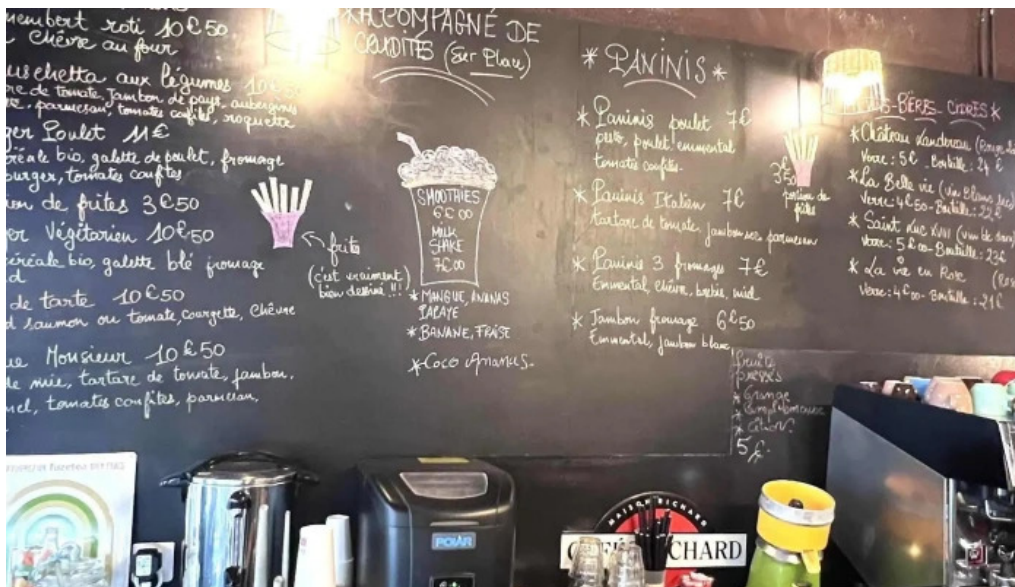 membert roti 10€50
chèvre au four
uschetta aux légumes 10€50
re de tomate, jambon de pays, aubergines
parmesan, tomates confites, roquette
ger Poulet 11€
réale bio, galette de poulet, fromage
burger, tomates confites
ion de frites 3€50
er Végétarien 10€50
céréale bio, galette blé fromage
de tarte 10€50
d saumon ou tomate, courgette, chèvre
ue Monsieur 10€50
de mie, tartare de tomate, jambon,
mel, tomates confites, parmesan,
ACCOMPAGNÉ DE
CRUDITÉS (Sur Place)
frites
(c'est vraiment
bien dessiné !!!)
SMOOTHIES
6€00
MILK
SHAKE
7€00
* MANGUE, ANANAS
PAPAYE
* BANANE, FRAISE
* Coco Ananas.
* PANINIS *
* Paninis poulet 7€
pesto, poulet, emmental
tomates confites.
* Paninis Italien 7€
tartare de tomate, jambon sec, parmesan
* Paninis 3 fromages 7€
Emmental, chèvre, brebis, miel
* Jambon fromage 6€50
Emmental, jambon blanc,
3€50
portion de
frites
S-BIÈRES-CIDRES *
* Château
Verre: 5€ - Bouteille: 24€
* La Belle vie (vin blanc sec)
Verre: 4€50 - Bouteille: 22€
* Saint Luc XVIII
Verre: 5€00 - Bouteille: 23€
* La vie en Rose
Verre: 4€00 - Bouteille: 21€
fruits
pressés
* Orange
* Pamplemousse
* Citron.
5€.
POLAR
MAISON RICHARD
CHARD